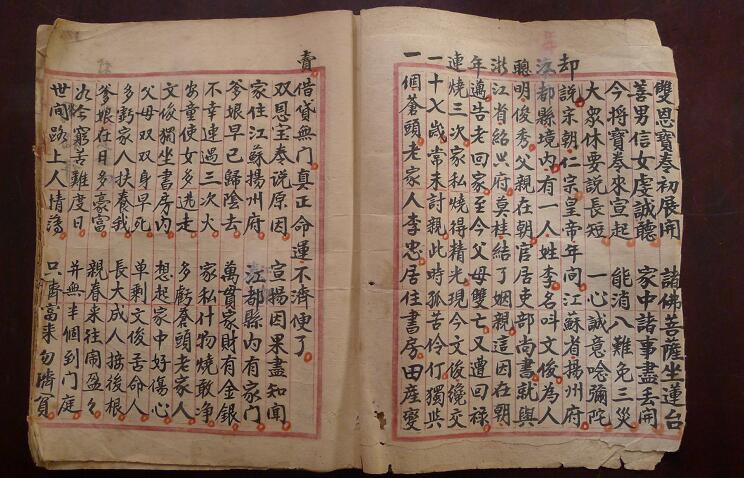 雙恩寶卷初展開　諸佛菩薩坐蓮台
善男信女虔誠聽　家中諸事盡丟開
今將寶卷來宣起　能消八難免三災
大衆休要說長短　一心誠意唸彌陀
却說宗朝仁宗皇帝年间江蘇省揚州府
江都縣境内有一人姓李名呌文俊為人
聰明俊秀父親在朝官居吏部尚書就與
浙江省紹興府莫桂結了姻親這因在朝
年邁告老回家至今父母雙亡又遭回祿
連燒三次家私燒得精光現今文俊纔交
一十七歲常未討親此時孤苦伶仃獨與
一個蒼頭老家人李忠居住書房田產變
賣借貸無门真正命運不濟便了
双恩宝奉说原因　宣揚因果盡知聞
家住江蘇揚州府　江都縣内有家门
爹娘早已歸陰去　萬貫家財有金銀
不幸連遇三次火　家私什物燒敢净
安童使女多逃走　多虧蒼頭老家人
文俊獨坐書房内　想起家中好傷心
父母双双身早死　单剩文俊苦命人
多虧家人扶養我　長大成人接後根
爹娘在日多豪富　親眷来往闹盈々
次今窮苦難度日　并無半個到门庭
世间路上人情薄　只齊富来勿濟貧